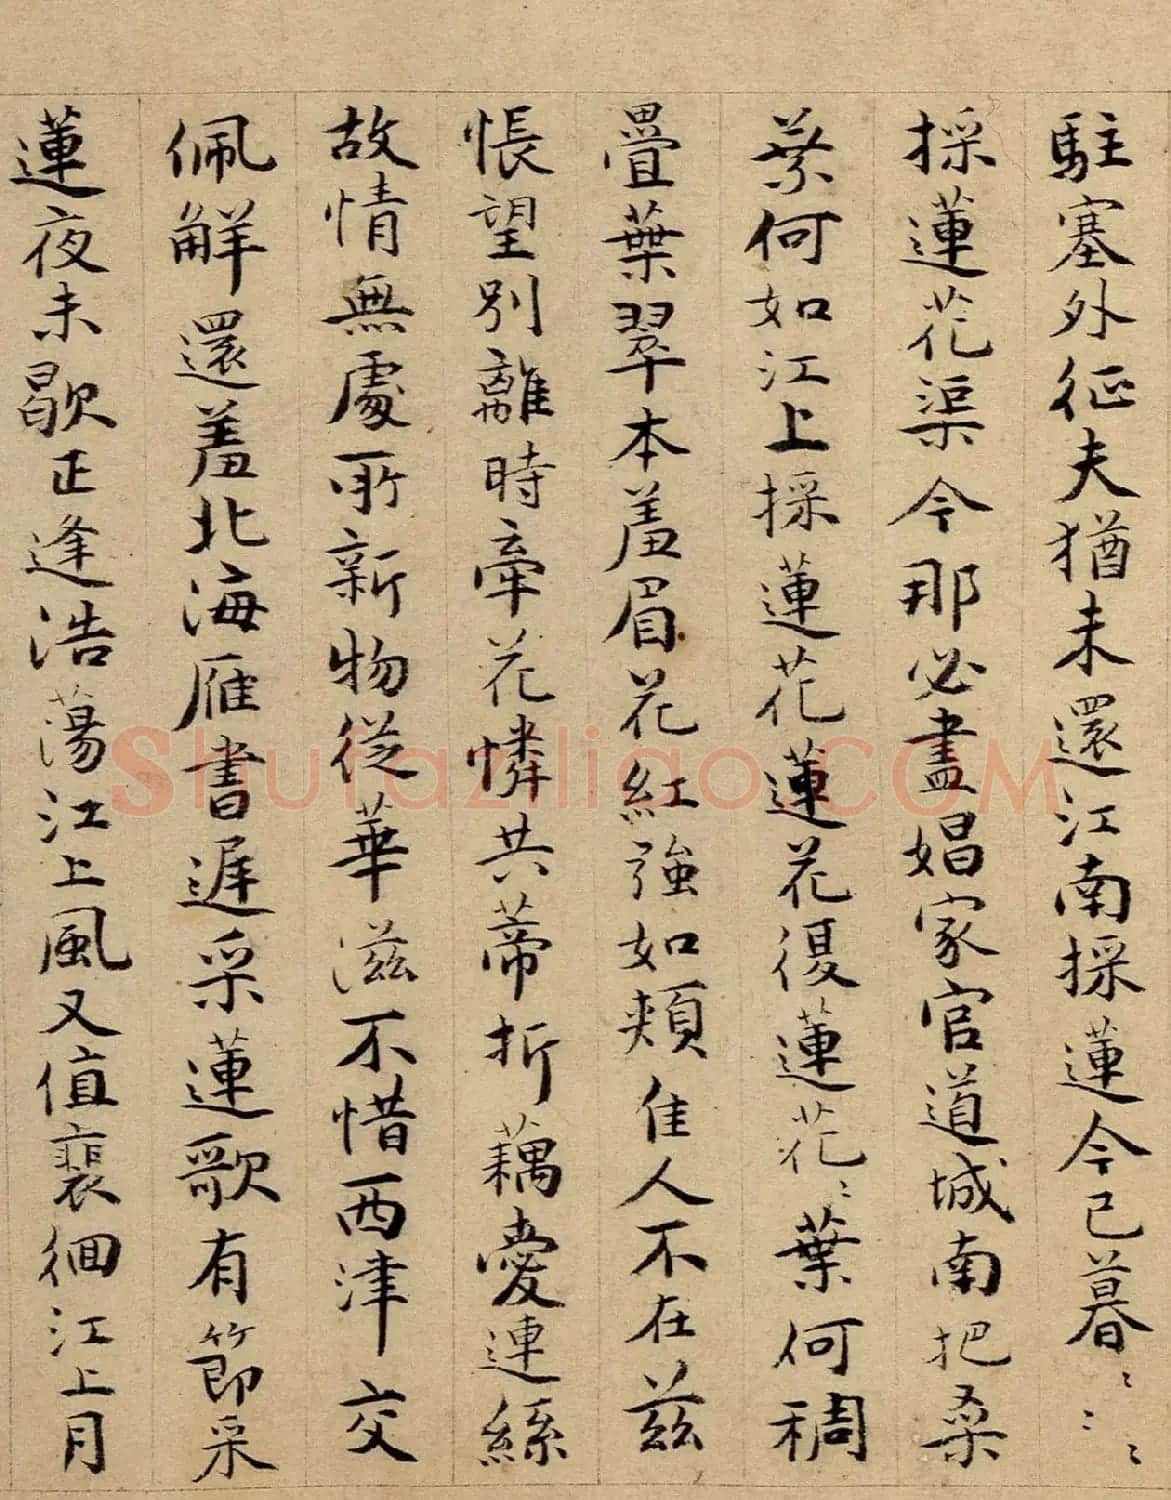 駐塞外征夫猶未還江南採蓮今已暮〻〻〻
採蓮花渠今那必盡娼家官道城南把桑
葉何如江上採蓮花蓮花復蓮花〻葉何稠
疊葉翠本羞眉花紅強如頰佳人不在兹
悵望別離時牽花憐共蒂折藕愛連絲
故情無處所新物從華滋不惜西津交
佩解還羞北海雁書遲采蓮歌有節采
蓮夜未歇正逢浩蕩江上風又值裴徊江上月
Shufaziliao.COM